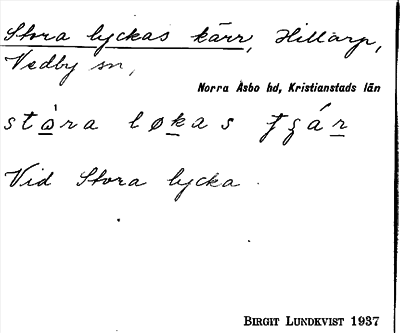 Stora lyckas kärr, Hillarp,
Vedby sn,
Norra Åsbo hd, Kristianstads län
stò̲ra løk̲as ʈʂár̲
Vid Stora lycka.
BIRGIT LUNDKVIST 1937